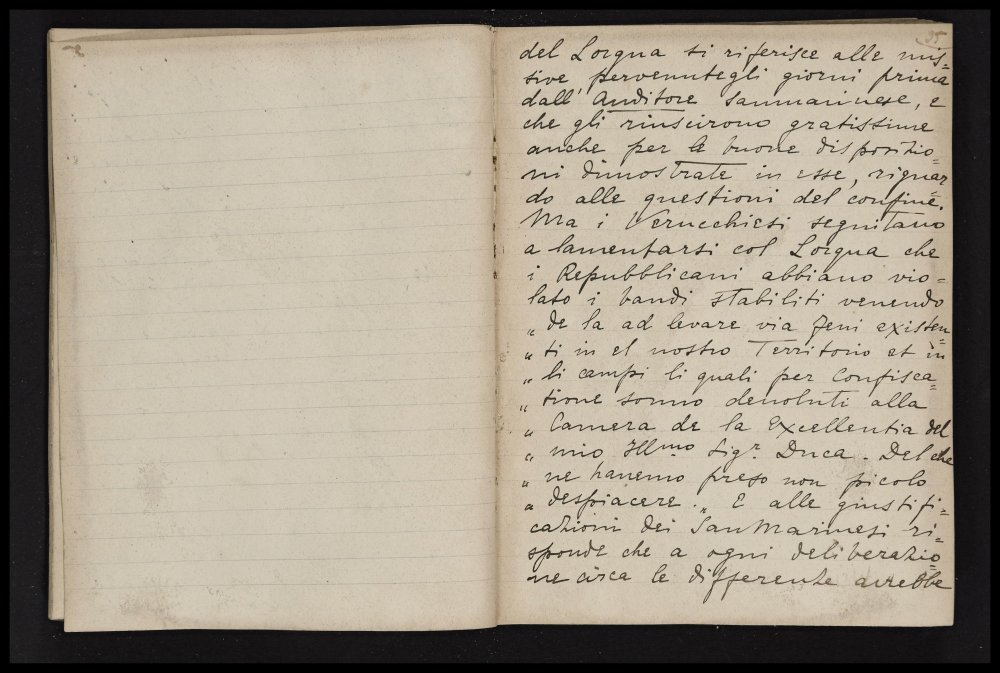 95
del Lorgna si riferisce alle mis=
sive pervenutegli giorni prima
dall' Auditore Sammarinese, e
che gli riuscirono gratissime
anche per le buone disposizio=
ni dimostrate in esse, riguar=
do alle questioni del confine.
Ma i Verucchiesi seguitano
a lamentarsi col Lorgna che
i Repubblicani abbiano vio=
lato i bandi stabiliti venendo
„ de la ad levare via feni existen=
„ ti in el nostro Territorio et in
„ li campi li quali per Confisca=
„ tione sonno devoluti alla
„ Camera de la Excellentia del
„ mio Illmo Sigr. Duca. Del che
„ ne havemo preso non picolo
„ despiacere. „ E alle giustifi=
cazioni dei San Marinesi ri=
sponde che a ogni deliberazio=
ne circa le differente avrebbe